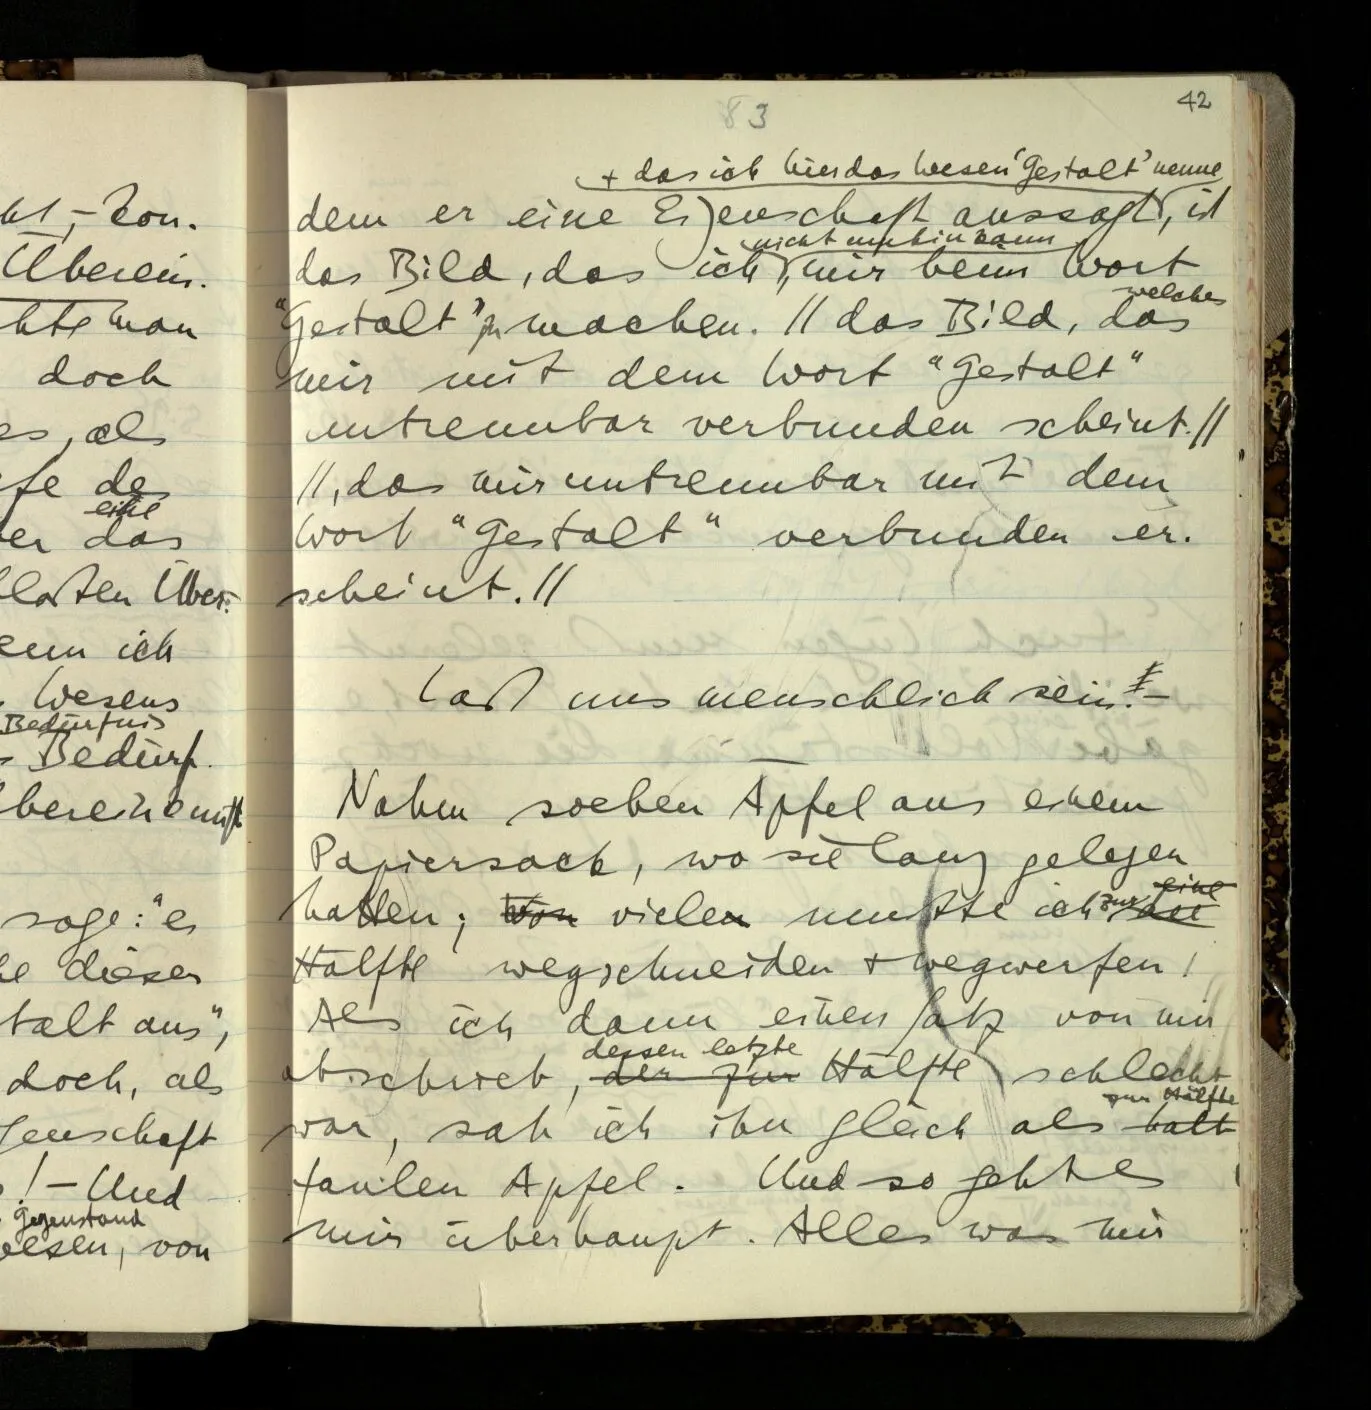 ht, – kon.
Überein.
hte man
doch
es, als
fe des
eine
er das
bloßen Über-
enn ich
Wesens
Bedürfnis
Bedürf.
bereinkunft
sage: "es
he dieser
talt aus",
doch, als
genschaft
! – Und
Gegenstand
wesen, von
42
83
+ das ich hier das Wesen 'Gestalt' nenne
dem er eine Eigenschaft aussagt, ist
nicht umhin kann
das Bild, das ich, mir beim Wort
welches
"Gestalt" zu machen. || das Bild, das
mir mit dem Wort "Gestalt"
untrennbar verbunden scheint. ||
||, das mir untrennbar mit dem
Wort "Gestalt" verbunden er-
scheint. ||
Laß uns menschlich sein. –
Nahm soeben Äpfel aus einem
Papiersack, wo sie lang gelegen
eine
hatten; Von vielen mußte ich zur die
Hälfte wegschneiden + wegwerfen.
Als ich dann einen Satz von mir
dessen letzte
abschrieb, der zur Hälfte schlecht
zur Hälfte
war, sah ich ihn gleich als halb
faulen Apfel. Und so geht es
mir überhaupt. Alles was mir